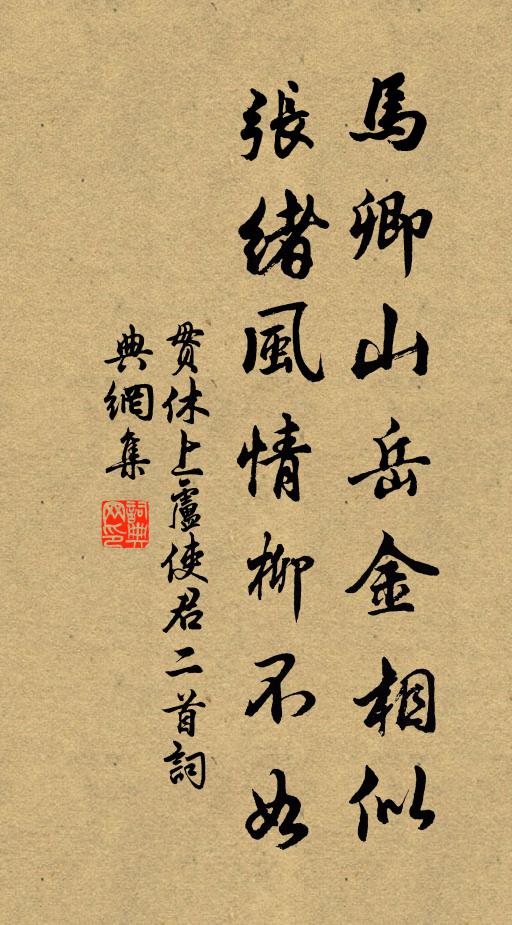 馬卿山岳金相似
張緒風情柳不如
貫休上盧使君二首詞
典網集
詞典
网印